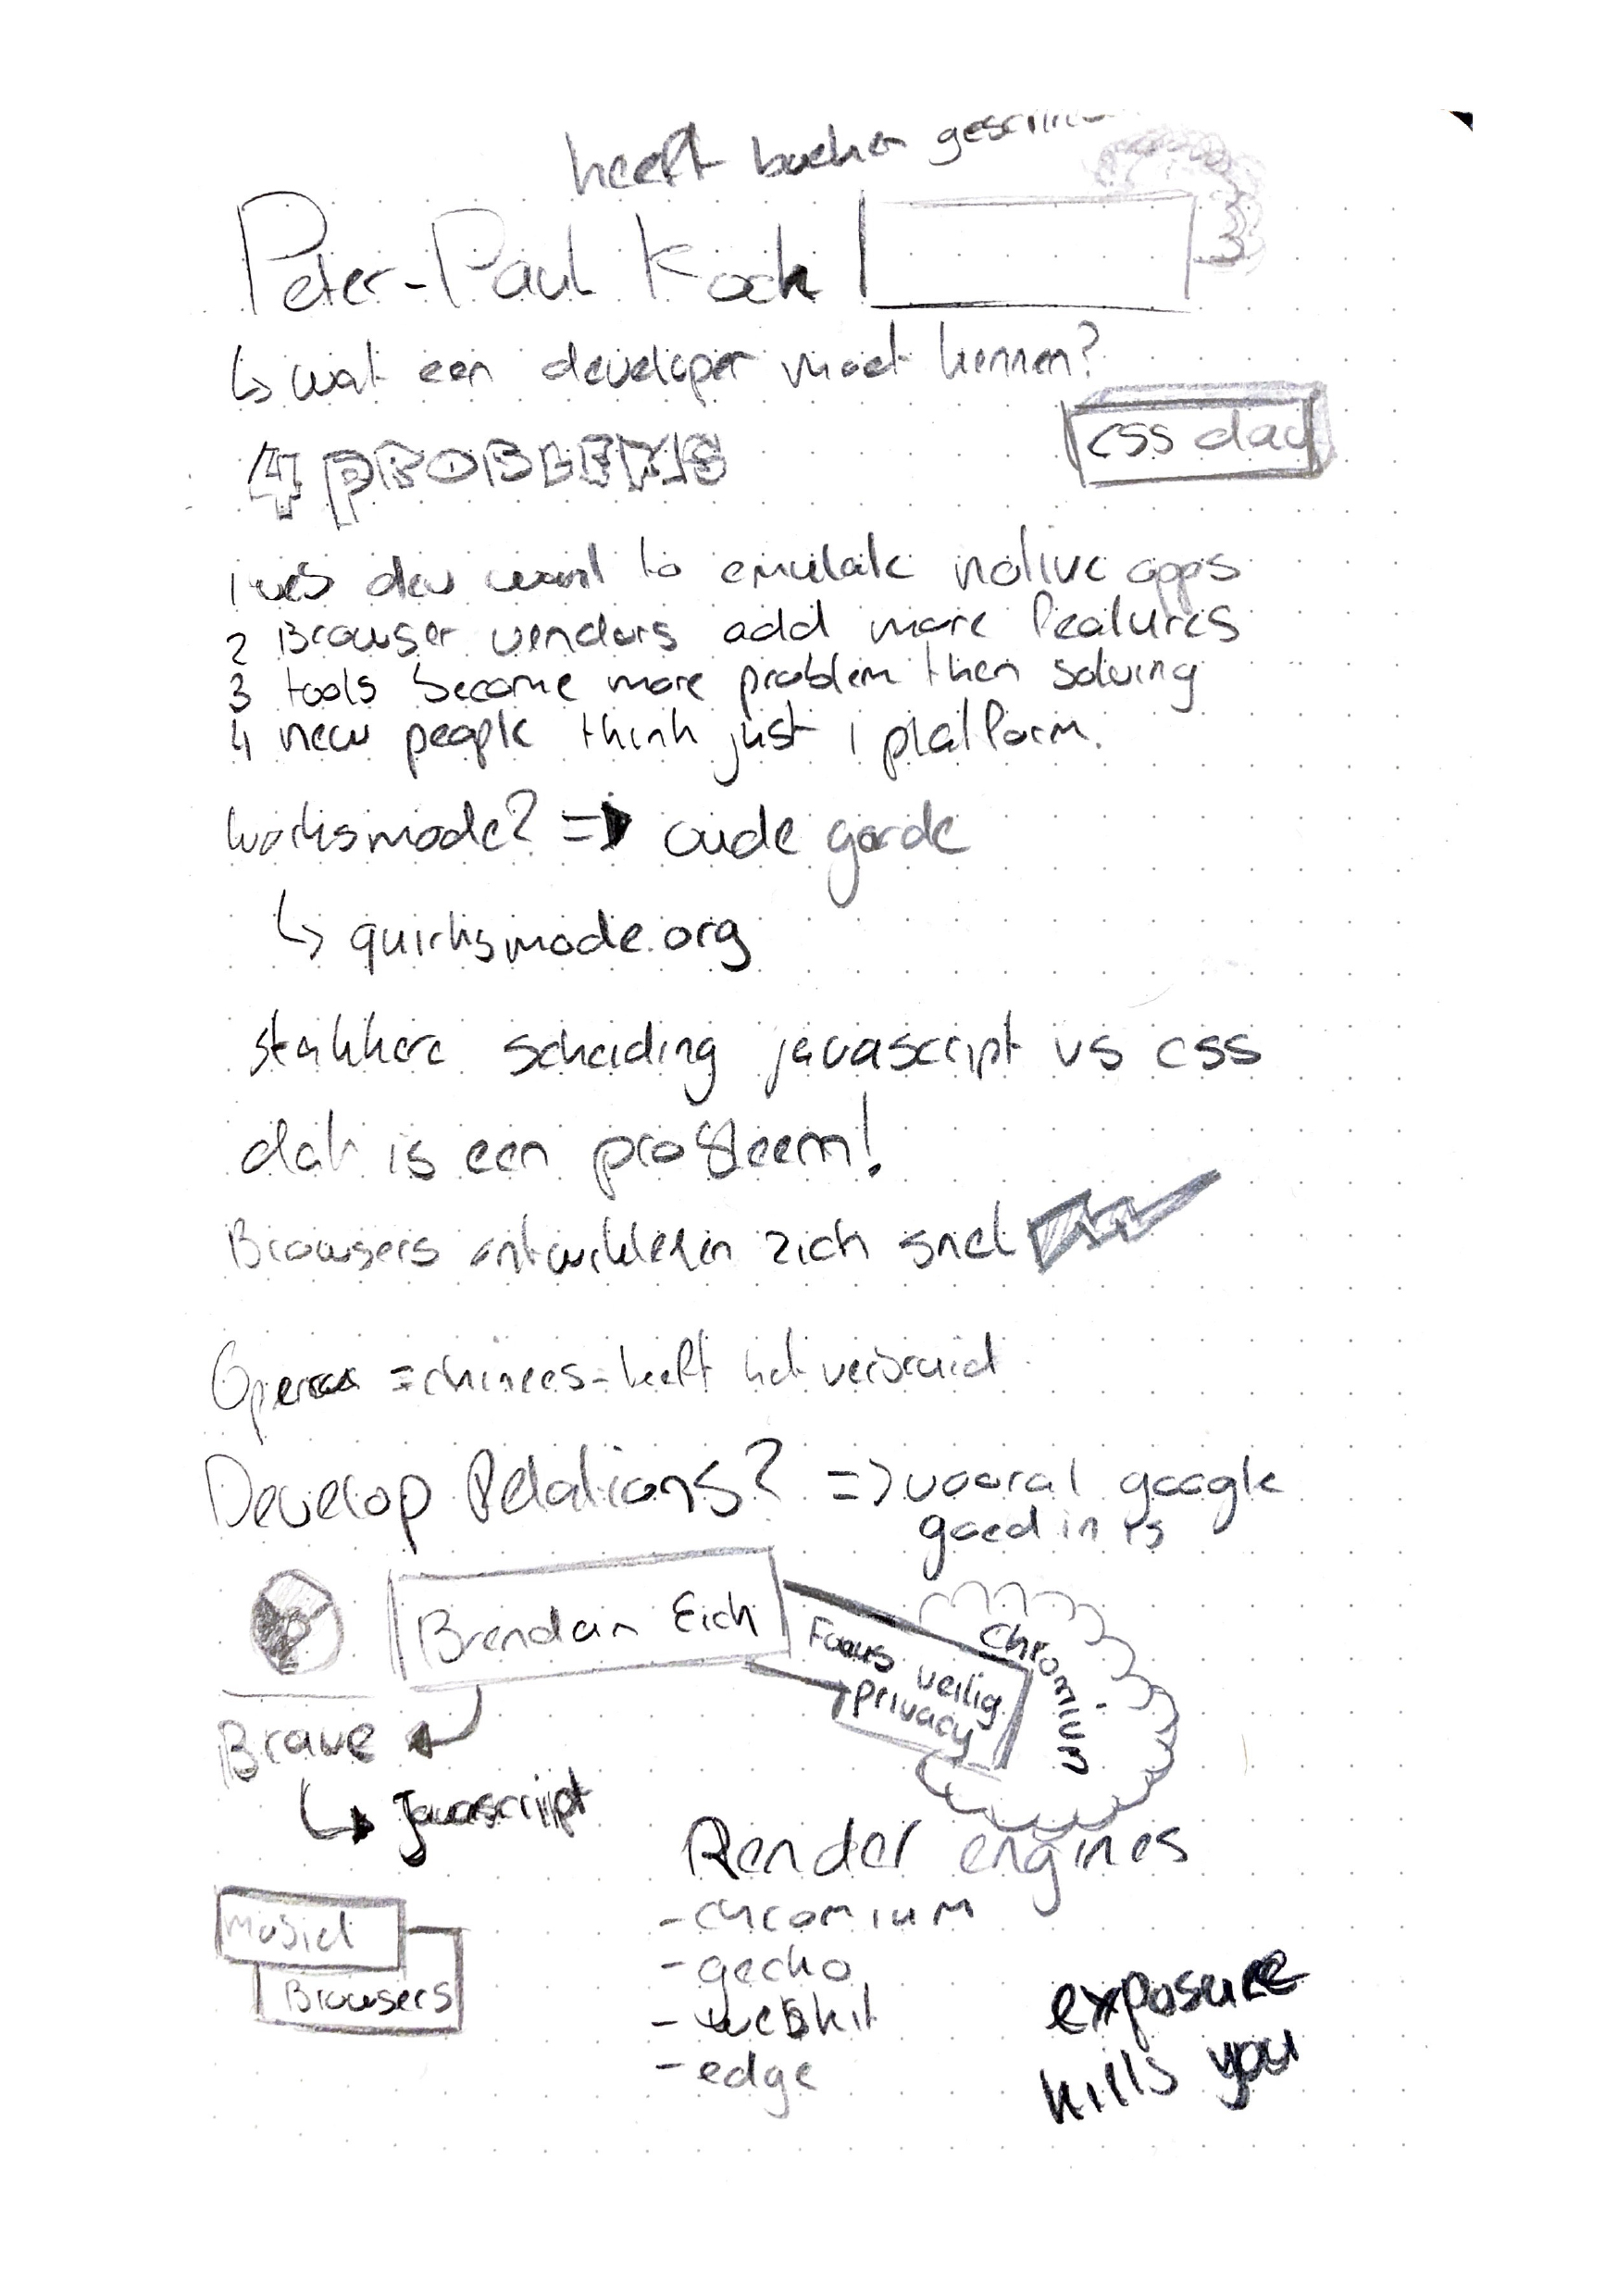 heeft boeken
Peter-Paul Koch
↳ wat een developer moet kennen?
css day
4 PROBLEMS
1 web dev want to emulate native apps
2 Browser vendors add more features
3 tools become more problem then solving
4 new people think just 1 platform.
worksmode? => oude garde
↳ quirksmode.org
stakkere scheiding javascript vs css
dat is een probleem!
Browsers ontwikkelen zich snel
Opera = chinees - heeft het verbruid
Develop Relations? => vooral google
goed in is
Brendan Eich
Focus veilig
privacy
chromium
Brave
↳ Javascript
Render engines
- chromium
- gecko
- webkit
- edge
mobiel
Browsers
exposure
kills you